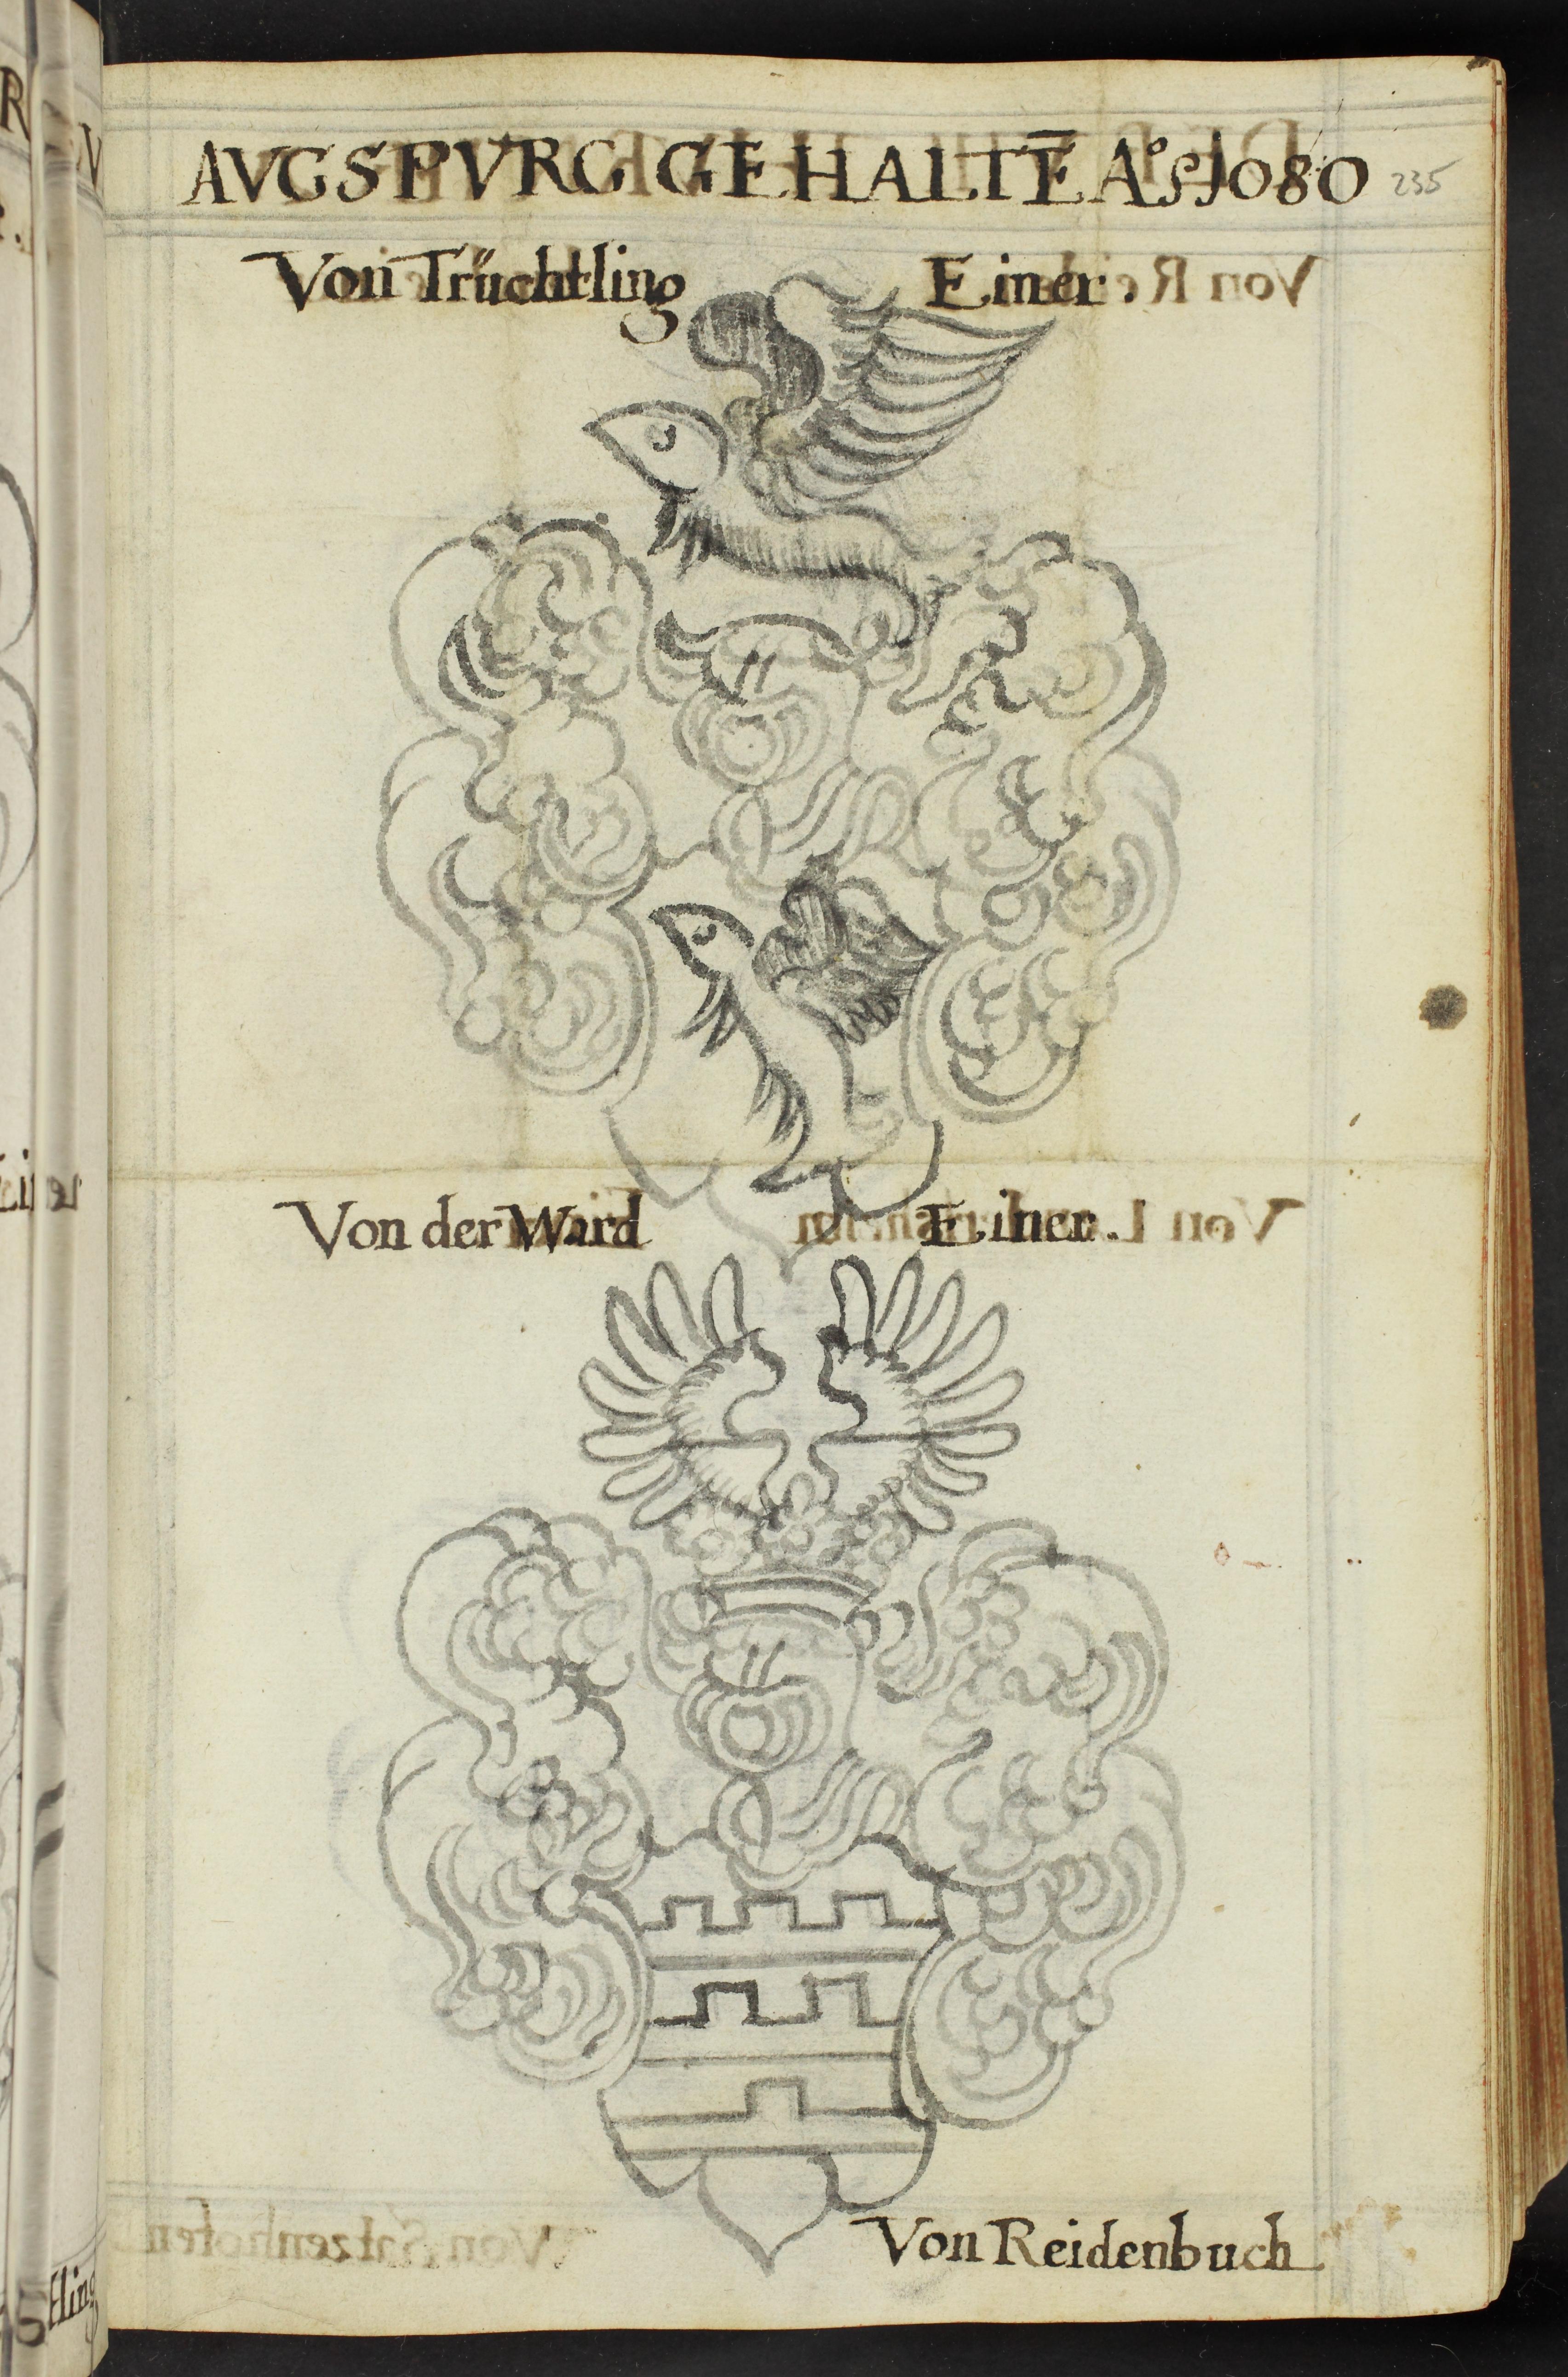 AVGSPVRG GEHALTĒ A° 1080 235
Von Trüchtling Einer.
Von der Ward Einer.
Von Reidenbuch